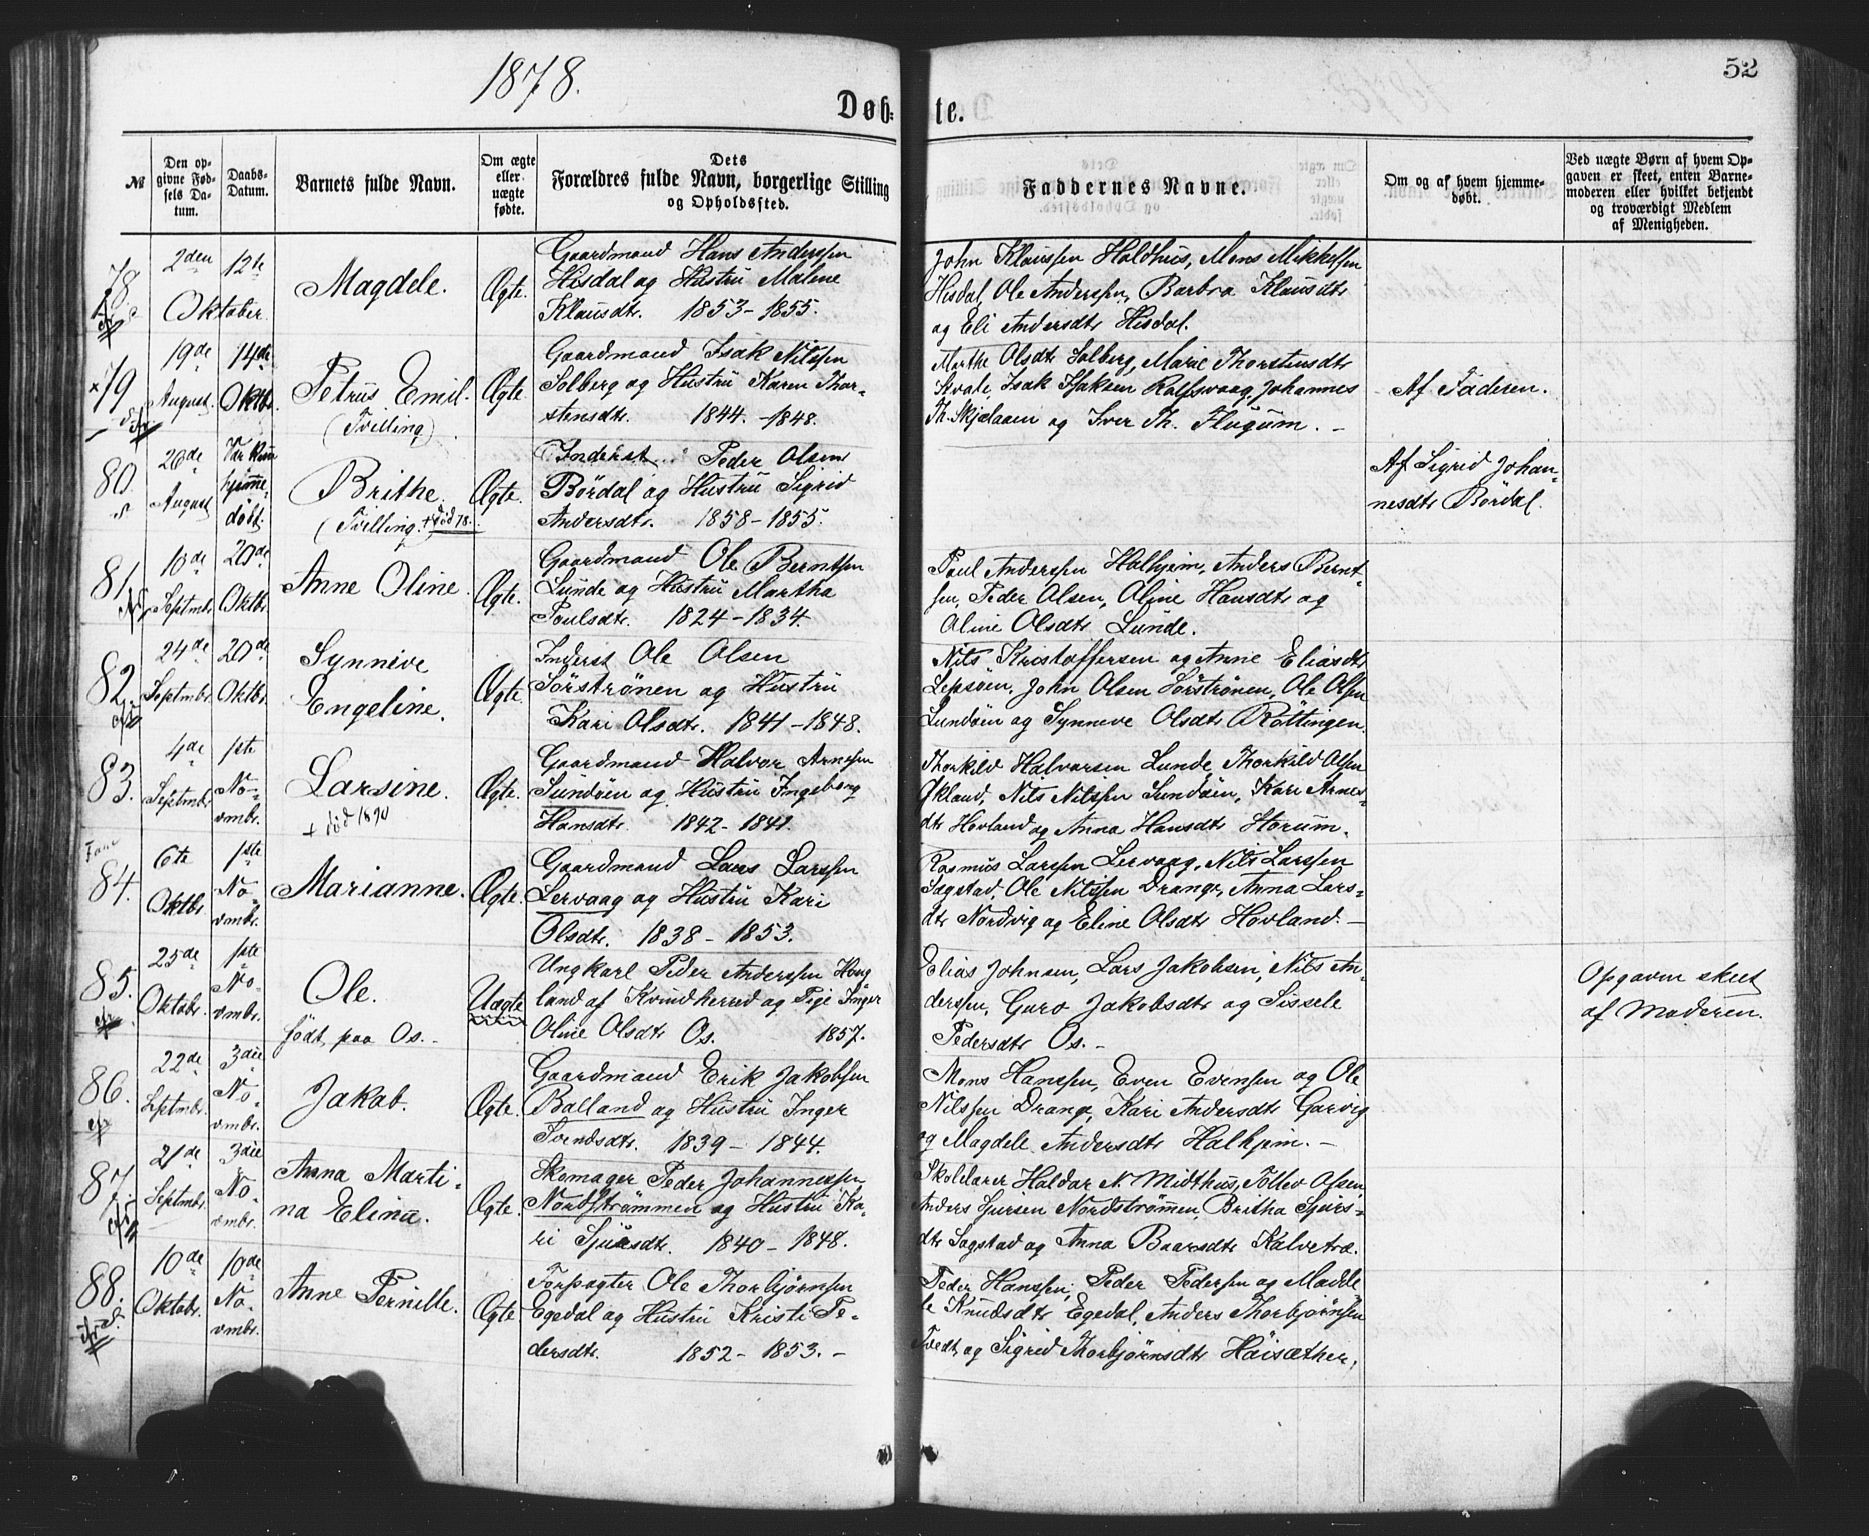 1878.
52
Døb-te.
№
Den opgivne Fødsels Datum.
Daabs-Datum.
Barnets fulde Navn.
Om ægte eller uægte fødte.
Dets Forældres fulde Navn, borgerlige Stilling og Opholdssted.
Faddernes Navne.
Om og af hvem hjemmedøbt.
Ved uægte Børn af hvem Opgaven er skeet, enten Barnemoderen eller hvilket bekjendt og troværdigt Medlem af Menigheden.
78
2den Oktober
12te
Magdele.
Ægte.
Gaardmand Hans Anderssen
Hisdal og Hustru Malene
Klausdtr. 1853-1855.
John Klaussen Haldhus, Mons Mikkelsen
Hisdal, Ole Anderssen, Barbra Klausdtr
og Eli Andersdtr Hisdal.
79
19de August.
14de Oktbr.
Petrus Emil.
(Tvilling)
Ægte
Gaardmand Isak Nilssen
Solberg og Hustru Karen Thor-
stensdtr. 1844.-1848.
Marthe Olsdtr Solberg, Marie Thorstensdtr
Hvale, Isak Isaksen Rolfsvaag, Johannes
Th. Skjelaaen og Iver Th. Flugum. -
Af Faderen.
80.
26de August
Var kun hjemme-døbt.
Brithe.
(Tvilling.) + død 78.
Ægte.
Inderst Peder Olsen
Bördal og Hustru Sigrid
Andersdtr. 1858-1855.
Af Sigrid Johan-
nesdtr Bördal.
81.
13de Septmbr.
20de Oktbr.
Anne Oline.
Ægte.
Gaardmand Ole Berntsen
Lunde og Hustru Martha
Poulsdtr. 1824-1834.
Poul Anderssen Halhjem, Anders Bernt-
sen, Peder Olsen, Oline Hansdtr og
Oline Olsdtr Lunde.
82.
24de Septmbr.
20de Oktbr.
Synneve
Engeline.
Ægte.
Inderst Ole Olsen
Sörströnen og Hustru
Kari Olsdtr. 1841-1848.
Nils Kristoffersen og Anne Eliasdtr
Lepsöen, John Olsen Sörströnen, Ole Olsen
Sundöen og Synneve Olsdtr Röttingen.
83.
4de Septmbr.
1ste No-vmbr.
Larsine.
+ død 1890
Ægte.
Gaardmand Halvor Arnesen
Sundöen og Hustru Ingeborg
Hansdtr. 1842-1841.
Thorkild Halvorsen Lunde, Thorkild Olsen
Økland, Nils Nilssen Sundöen, Kari Arnes-
dtr Hovland og Anna Hansdtr Storum.
Fane
84.
6te Oktbr.
1ste No-vmbr.
Marianne.
Ægte.
Gaardmand Lars Larssen
Lervaag og Hustru Kari
Olsdtr. 1838-1853.
Rasmus Larssen Lervaag, Nils Larssen
Sagstad, Ole Nilssen Drange, Anna Lars-
dtr Nordvig og Eline Olsdtr Hovland. -
85.
25de Oktobr.
1ste No-vmbr.
Ole.
født paa Os. -
Uægte
Ungkarl Peder Anderssen Haug-
land af Kvindherred og Pige Inger
Oline Olsdtr Os. 1857.
Elias Johnsen, Lars Jakobsen, Nils An-
derssen, Guro Jakobsdtr og Sissele
Pedersdtr Os. -
Opgaven skeet
af Moderen.
86.
22de Septmbr.
3die No-vmbr.
Jakob.
Ægte.
Gaardmand Erik Jakobsen
Balland og Hustru Inger
Svendsdtr. 1839-1844.
Mons Hanssen, Even Evensen og Ole
Nilssen Drange, Kari Andersdtr Garvig
og Magdele Andersdtr Halhjem. -
87.
21de Septmbr.
3die No-vmbr.
Anna Marti-
na Elina.
Ægte.
Skomager Peder Johannessen
Nordströmmen og Hustru Ka-
ri Sjursdtr. 1840-1848.
Skolelærer Haldor N. Midthus, Tollev Olsen,
Anders Sjursen Nordströmen, Britha Sjurs-
dtr Sagstad og Anna Baarsdtr Kalvetræ.
88.
10de Oktobr.
10de No-vmbr.
Anne Pernille.
Ægte
Forpagter Ole Thorbjørnsen
Egedal og Hustru Kristi Pe-
dersdtr. 1852-1853. -
Peder Hanssen, Peder Pederssen og Madde-
le Knudsdtr Egedal, Anders Thorbjørnsen
Tvedt, og Sigrid Thorbjørnsdtr Høisæther.